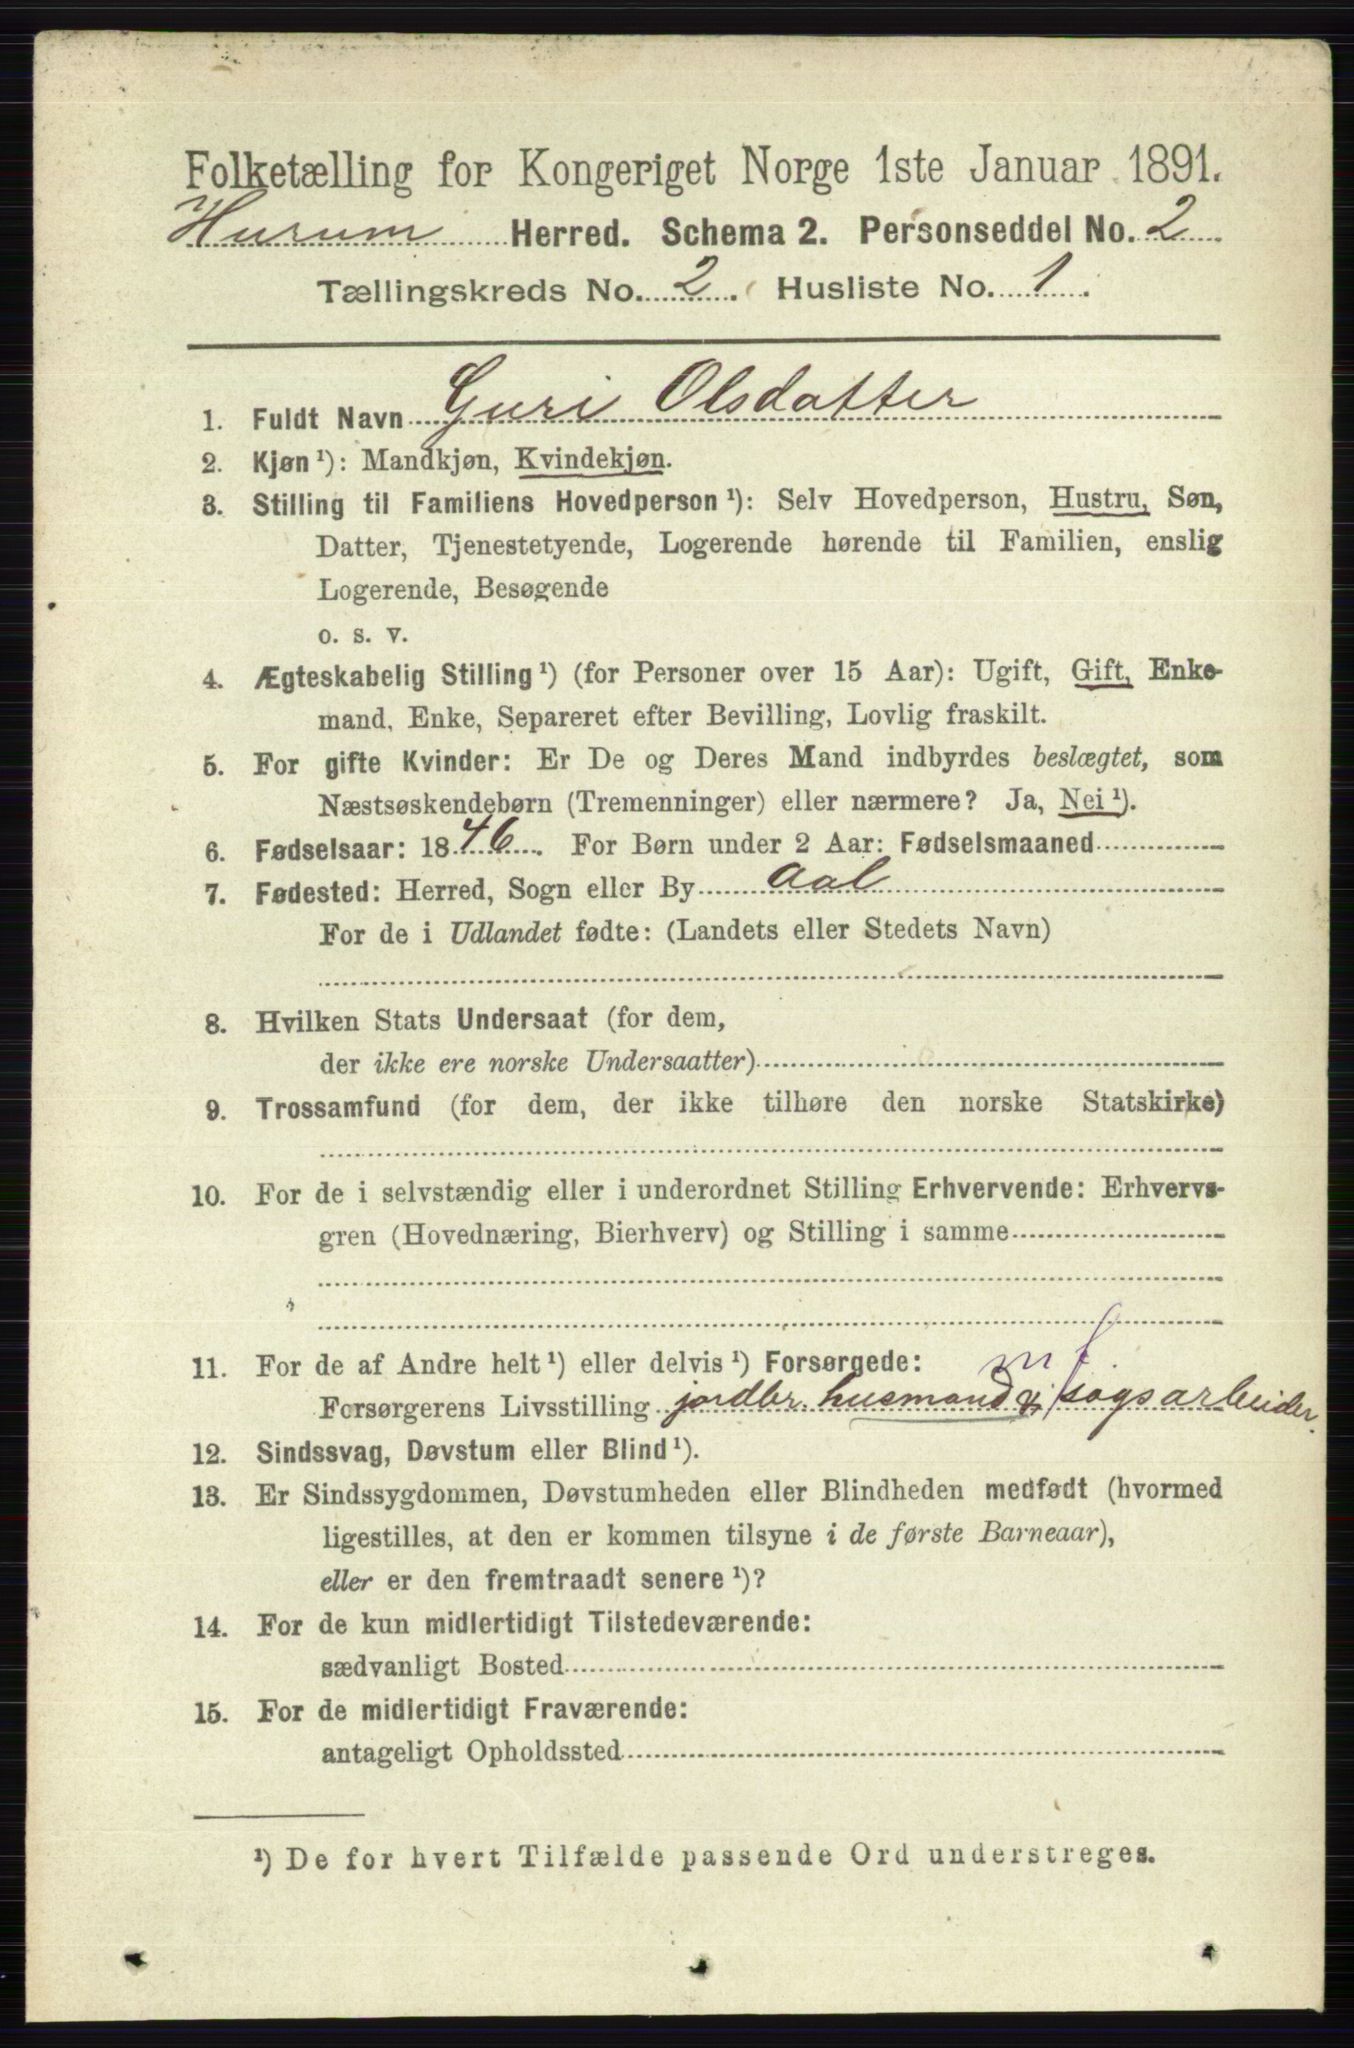 Folketælling for Kongeriget Norge 1ste Januar 1891.
Hurum Herred. Schema 2. Personseddel No. 2
Tællingskreds No. 2. Husliste No. 1.
1. Fuldt Navn Guri Olsdatter
2. Kjøn ¹): Mandkjøn, Kvindekjøn.
3. Stilling til Familiens Hovedperson ¹): Selv Hovedperson, Hustru, Søn,
Datter, Tjenestetyende, Logerende hørende til Familien, enslig
Logerende, Besøgende
o. s. v.
4. Ægteskabelig Stilling ¹) (for Personer over 15 Aar): Ugift, Gift, Enke-
mand, Enke, Separeret efter Bevilling, Lovlig fraskilt.
5. For gifte Kvinder: Er De og Deres Mand indbyrdes beslægtet, som
Næstsøskendebørn (Tremenninger) eller nærmere? Ja, Nei ¹).
6. Fødselsaar: 1846. For Børn under 2 Aar: Fødselsmaaned
7. Fødested: Herred, Sogn eller By Aal
For de i Udlandet fødte: (Landets eller Stedets Navn)
8. Hvilken Stats Undersaat (for dem,
der ikke ere norske Undersaatter)
9. Trossamfund (for dem, der ikke tilhøre den norske Statskirke)
10. For de i selvstændig eller i underordnet Stilling Erhvervende: Erhvervs-
gren (Hovednæring, Bierhverv) og Stilling i samme
11. For de af Andre helt ¹) eller delvis ¹) Forsørgede: m f.
Forsørgerens Livsstilling jordbr. husmand & sagsarbeider.
12. Sindssvag, Døvstum eller Blind ¹).
13. Er Sindssygdommen, Døvstumheden eller Blindheden medfødt (hvormed
ligestilles, at den er kommen tilsyne i de første Barneaar),
eller er den fremtraadt senere ¹)?
14. For de kun midlertidigt Tilstedeværende:
sædvanligt Bosted
15. For de midlertidigt Fraværende:
antageligt Opholdssted
¹) De for hvert Tilfælde passende Ord understreges.